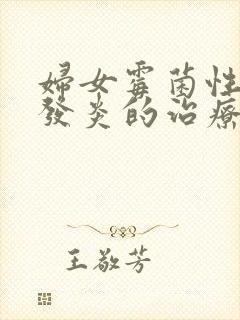 婦女霉菌性
發炎的治療
王敬芳